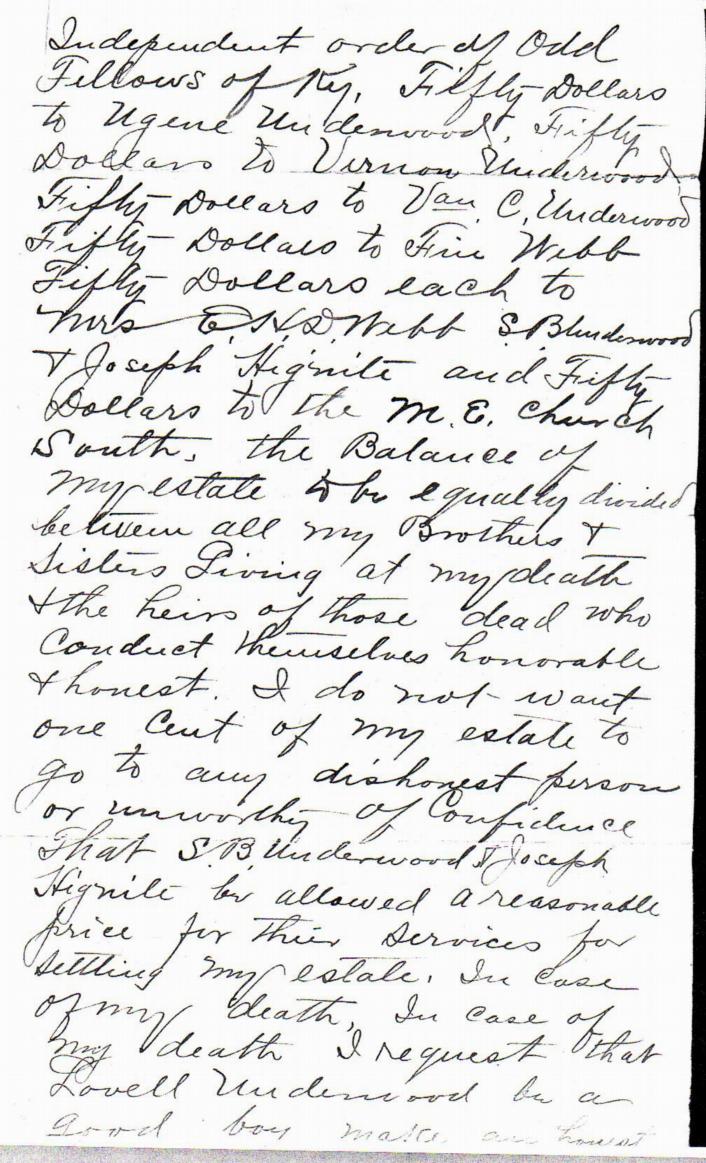 Independent order of Odd
Fellows of Ky, Fifty Dollars
to Ugene Underwood, Fifty
Dollars to Vernon Underwood
Fifty Dollars to Van. C. Underwood
Fifty Dollars to Fin Webb
Fifty Dollars each to
Mrs E.H.D. Webb S.B Underwood
& Joseph Hignite and Fifty
Dollars to the M.E. Church
South, the Balance of
my estate to be equally divided
between all my Brothers &
Sisters Living at my death
& the heirs of those dead who
Conduct themselves honorable
& honest. I do not want
one Cent of my estate to
go to any dishonest person
or unworthy of Confidence
That S.B. Underwood & Joseph
Hignite be allowed a reasonable
price for their services for
settling my estate. In case
of my death, In case of
my death I request that
Lovell Underwood be a
good boy make an honest